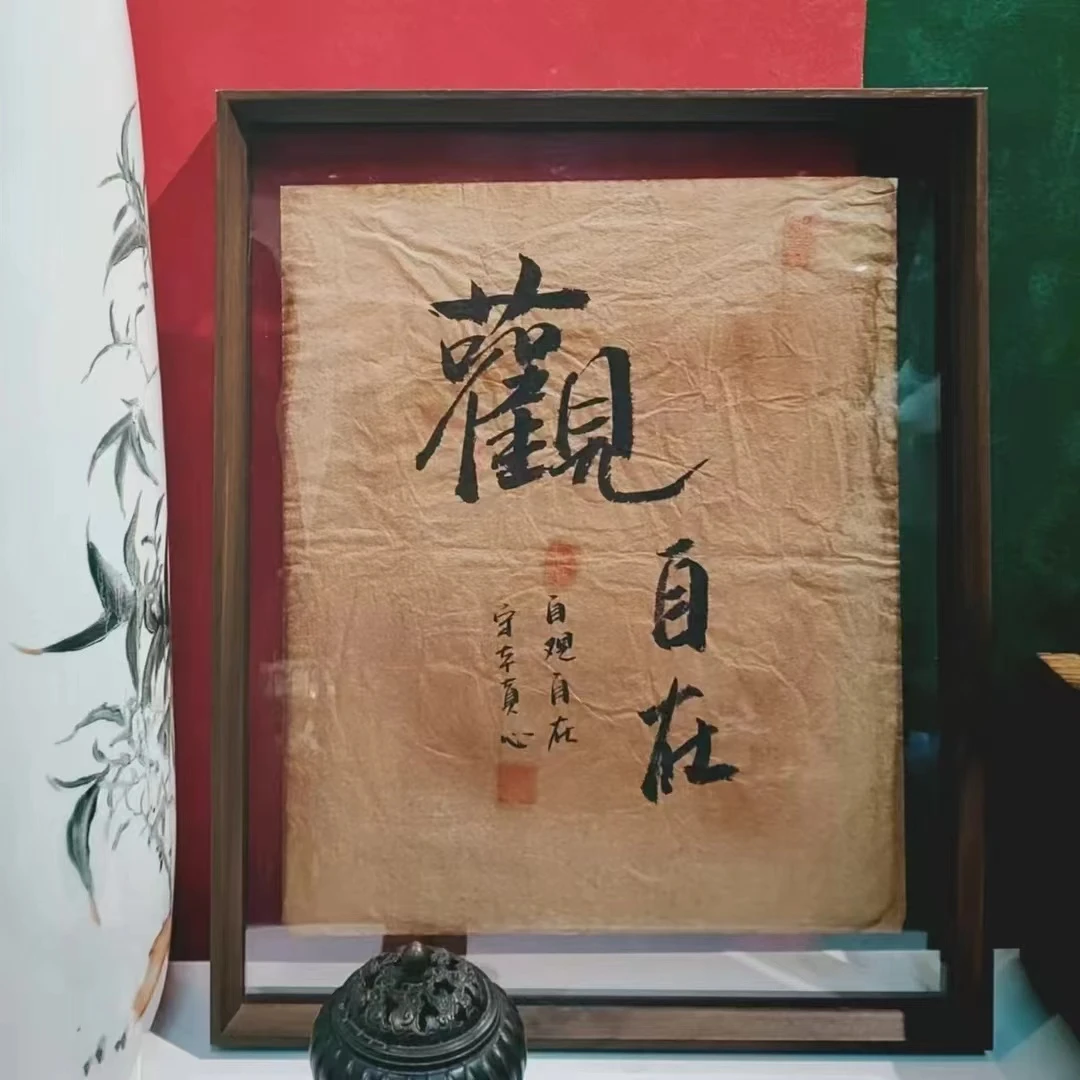 觀
自在
自观自在
守本真心